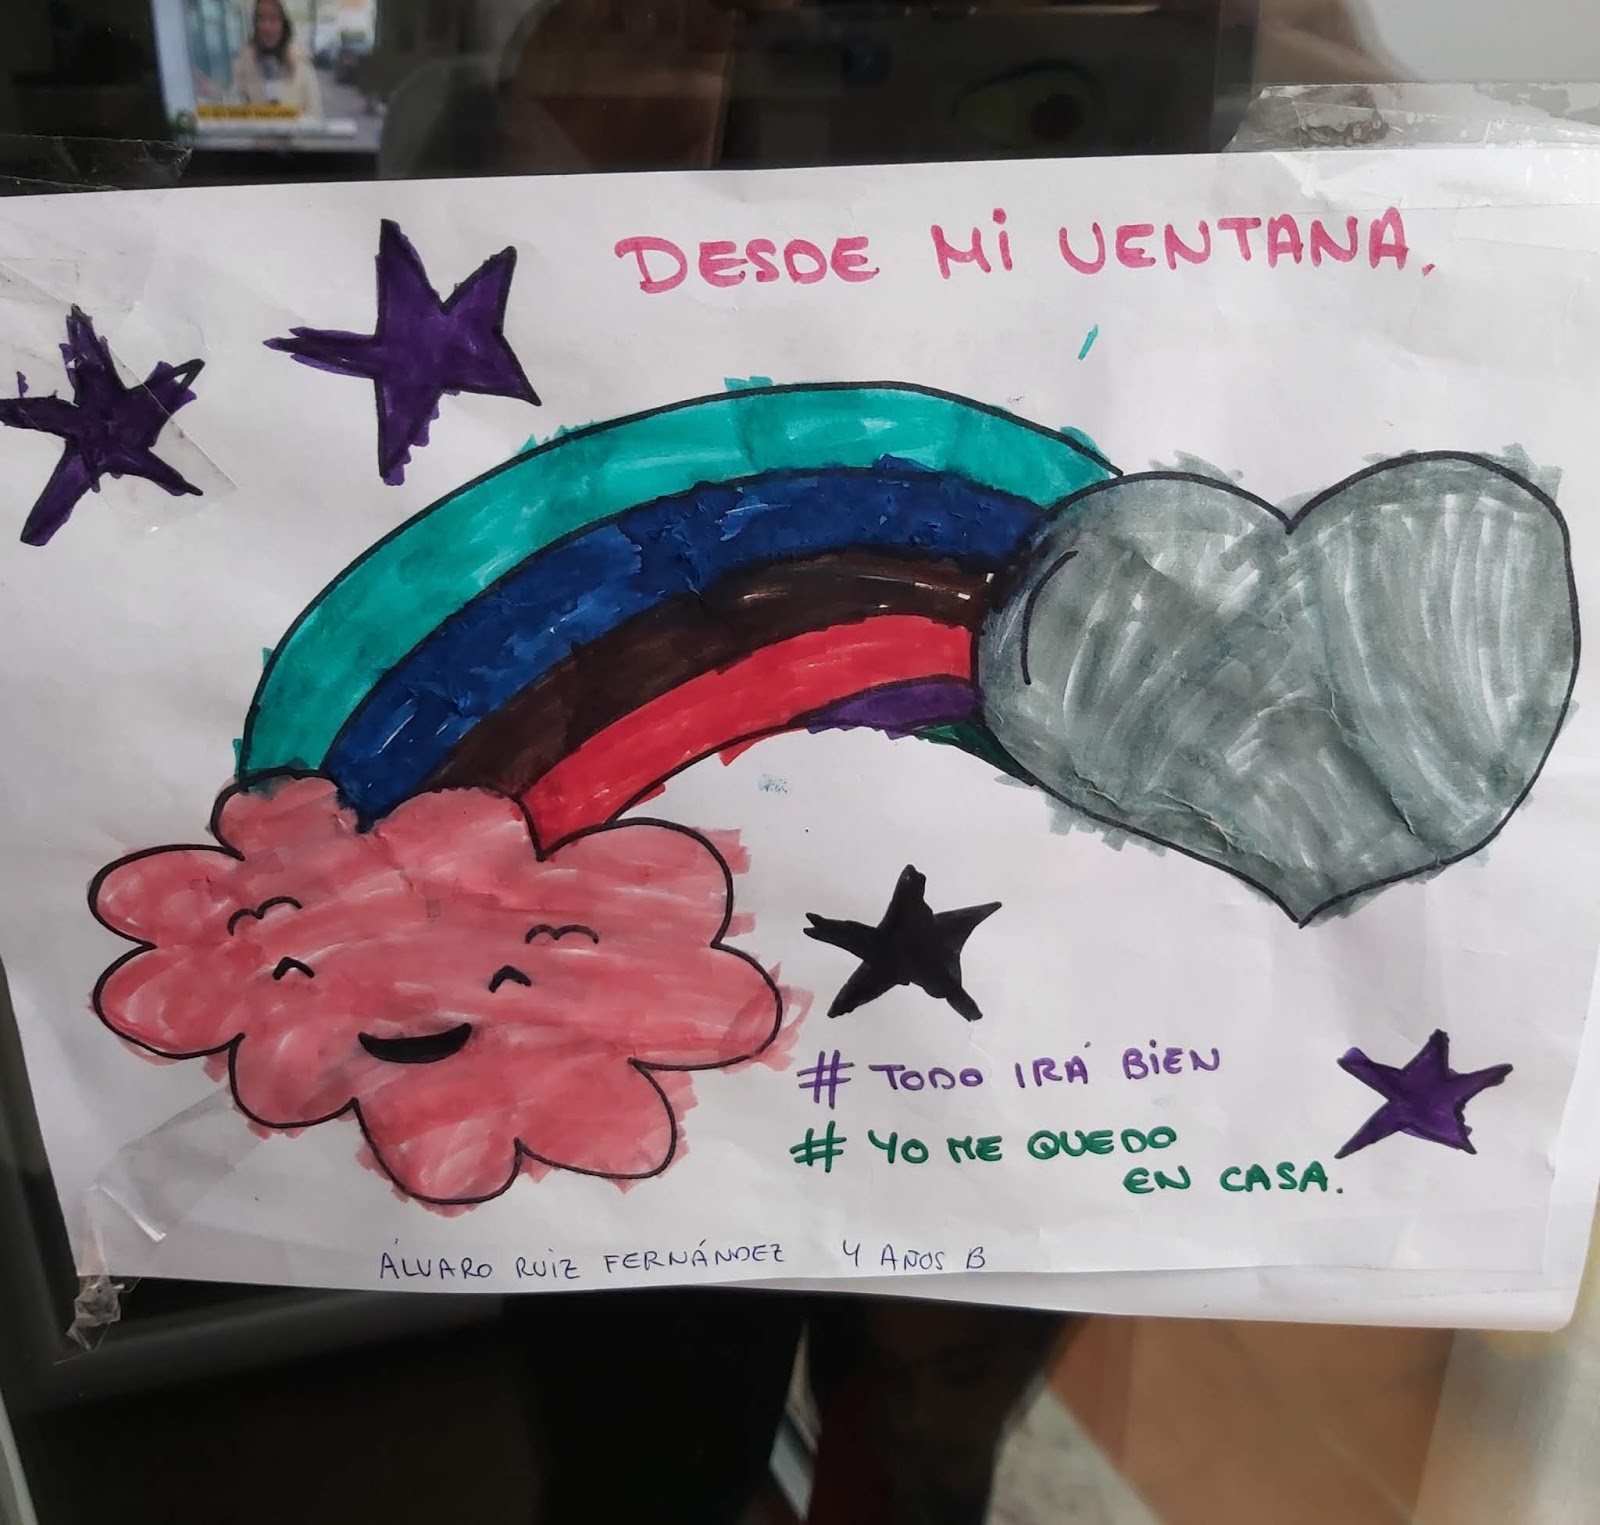 DESDE Mi VENTANA.
# TODO IRÁ BiEN
# YO ME QUEDO
EN CASA.
ÁLVARO RUIZ FERNÁNDEZ 4 AÑOS B